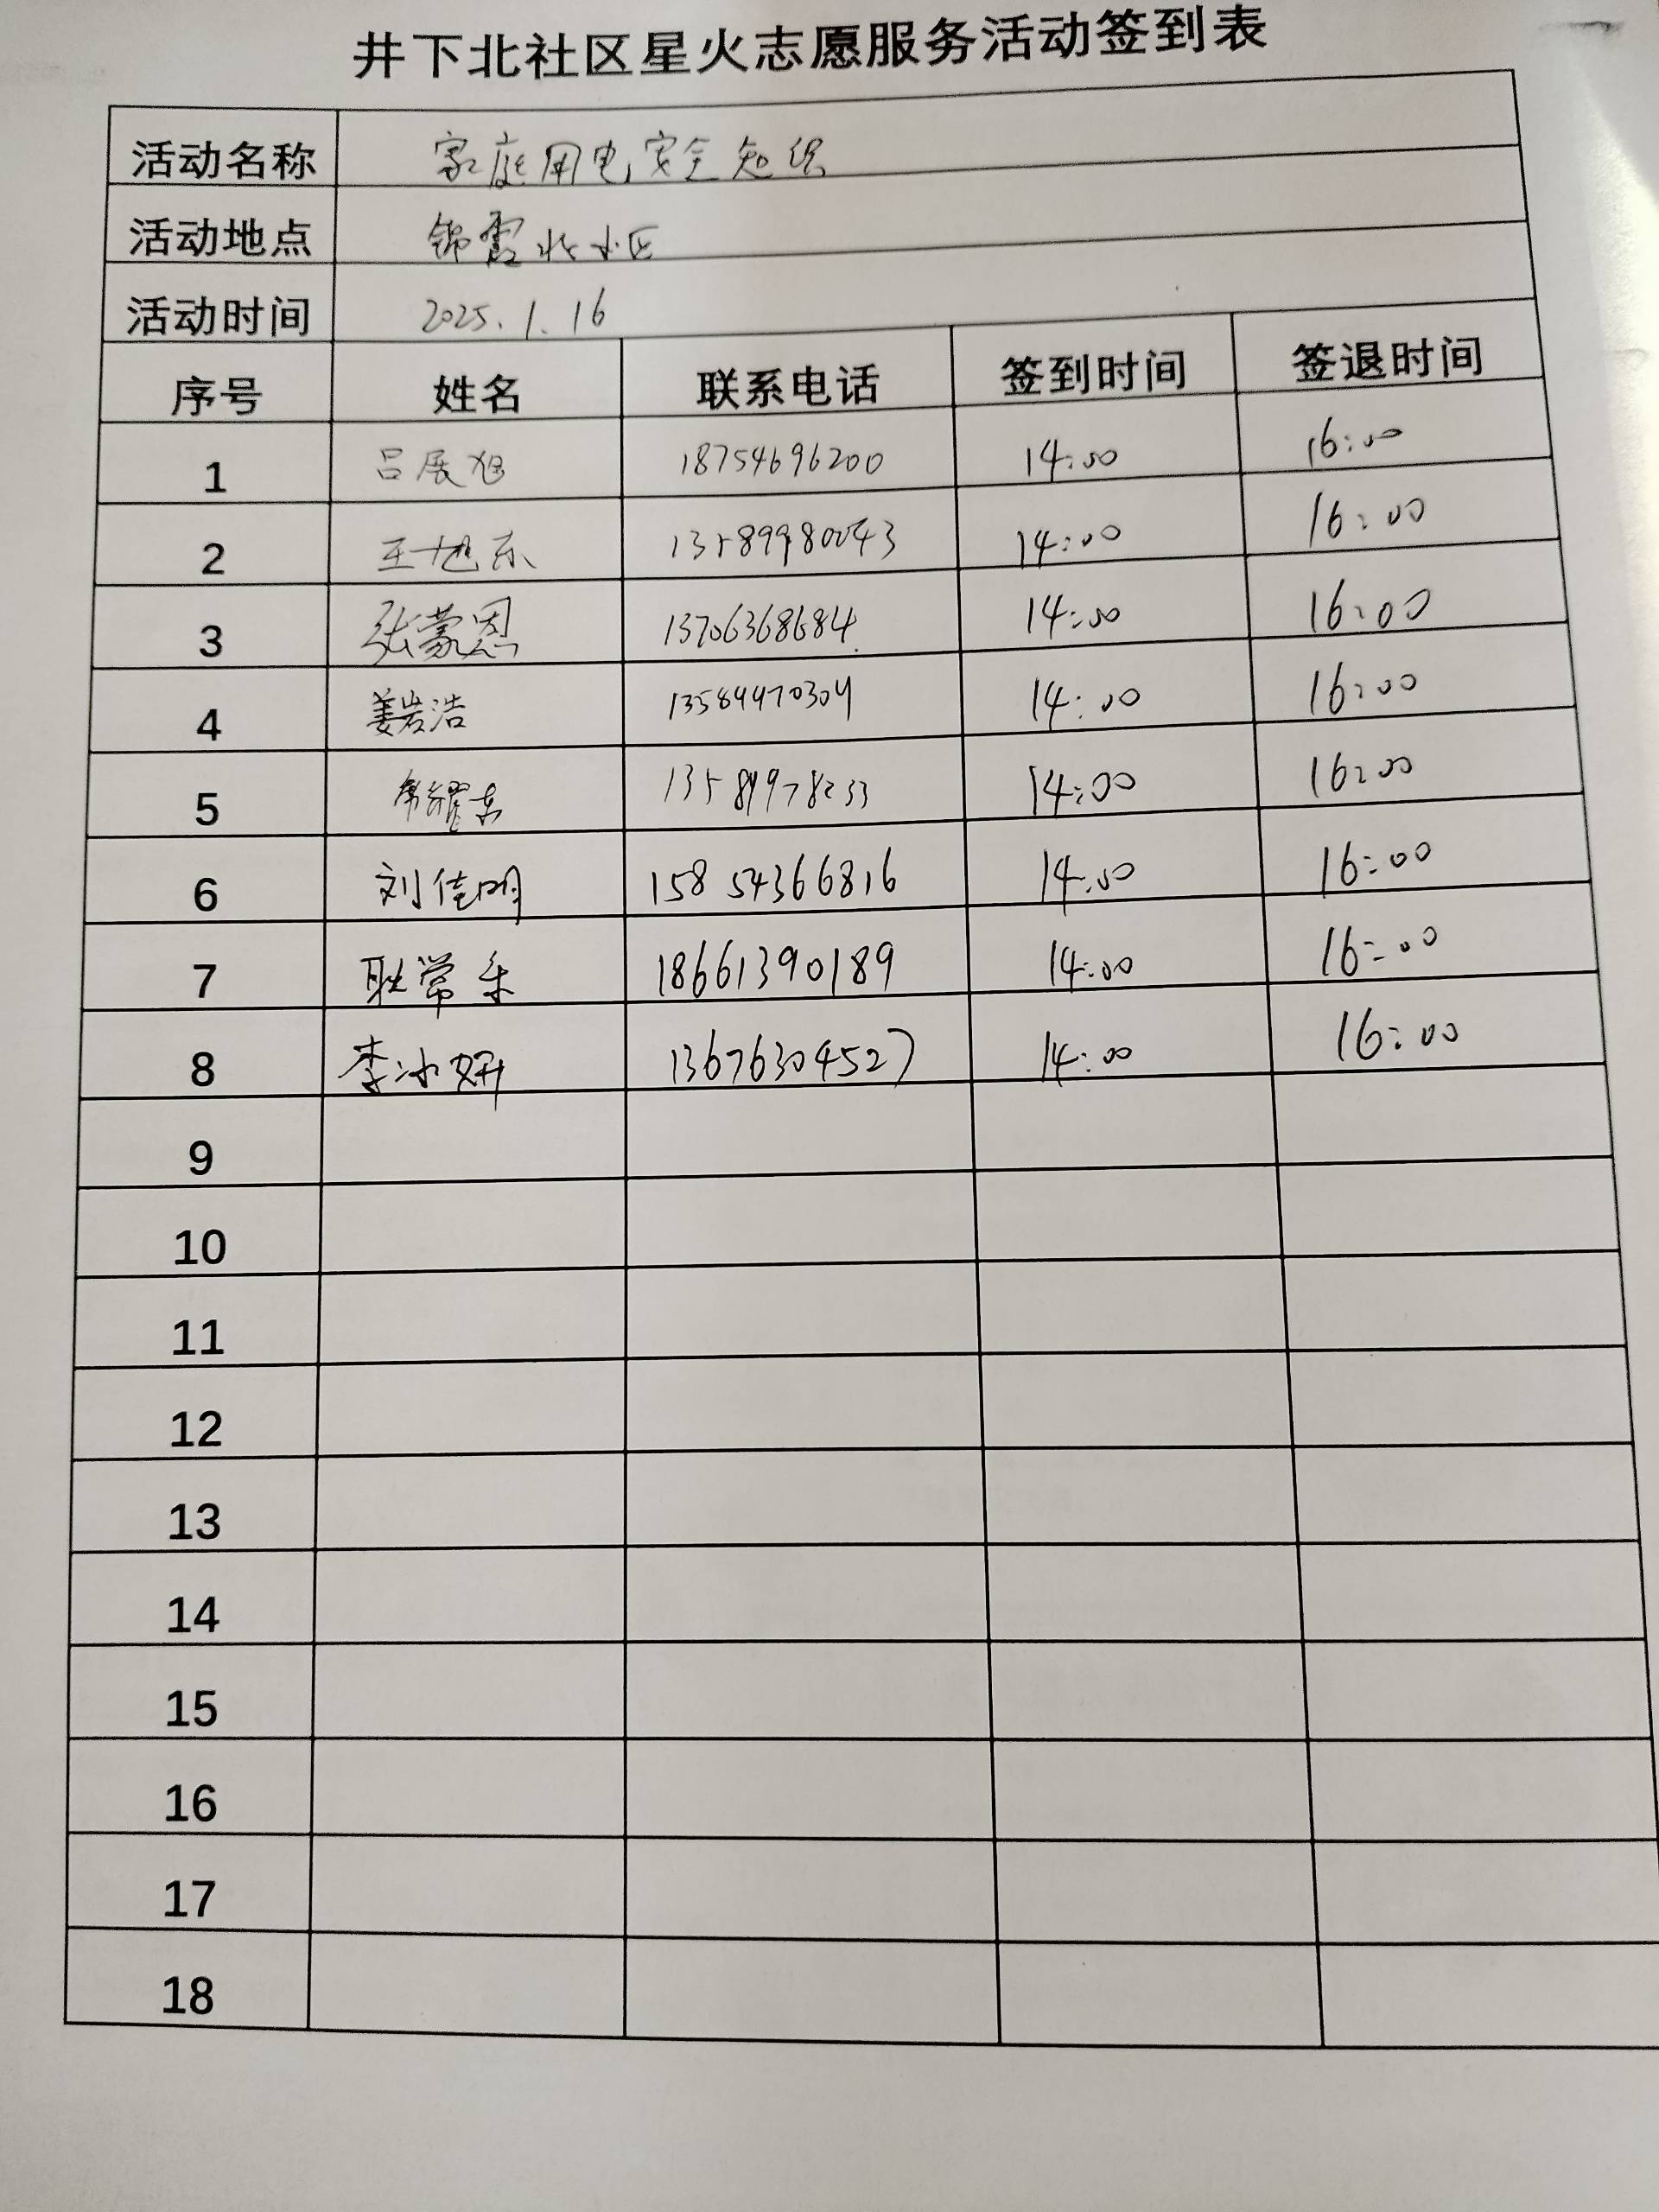 井下北社区星火志愿服务活动签到表
活动名称 家庭用电安全知识
活动地点 锦霞北小区
活动时间 2025.1.16
序号 姓名 联系电话 签到时间 签退时间
1 吕展旭 18754696200 14:00 16:00
2 王旭东 13589980043 14:00 16:00
3 张蒙恩 13706368684 14:00 16:00
4 姜岩浩 14:00 16:00
5 14:00 16:00
6 刘佳明 15854366816 14:00 16:00
7 耿常乐 18661390189 14:00 16:00
8 李冰妍 13676304527 14:00 16:00
9
10
11
12
13
14
15
16
17
18